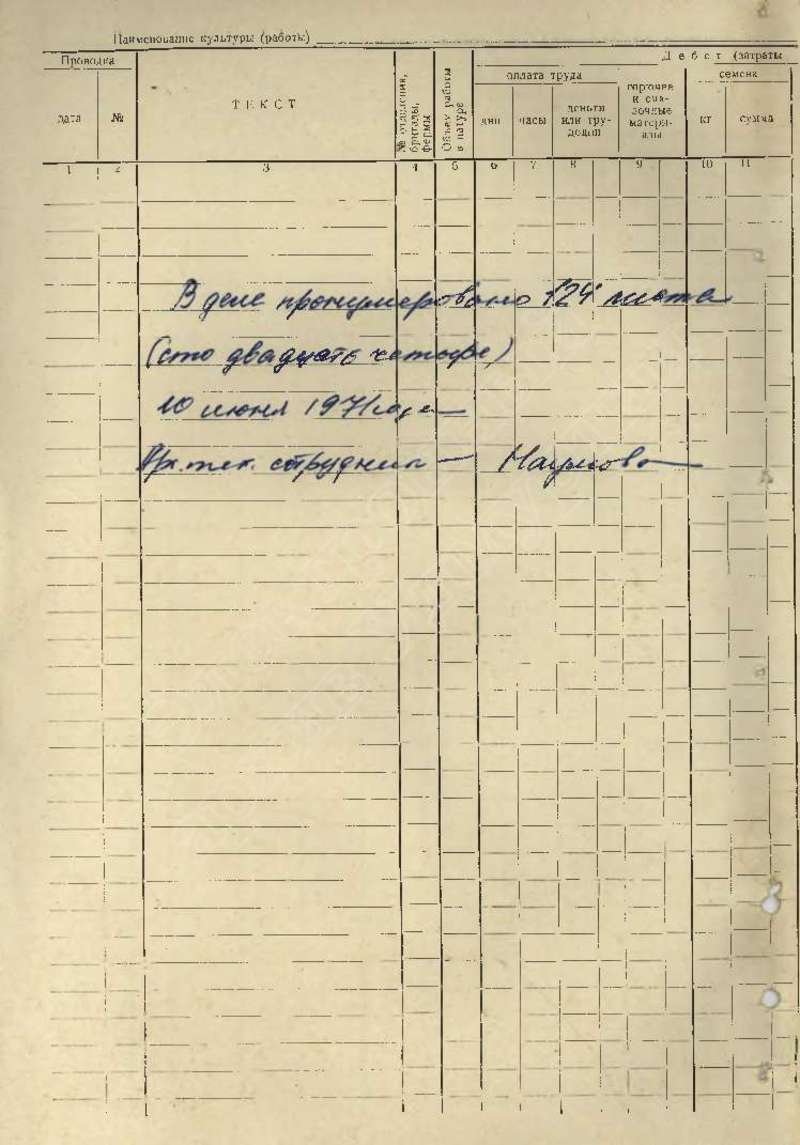 Наименование культуры (работы)
Проводка
дата
№
ТЕКСТ
№ отделения, бригады, фермы
Объем работы в натуре
Дебет (затраты
оплата труда
дни
часы
деньги или трудодни
горючее и смазочные материалы
семена
кг
сумма
1 2 3 4 5 6 7 8 9 10 11
В деле пронумеровано 124 листа
(сто двадцать четыре)
10 июня 1971 года
сотрудник — Наумова